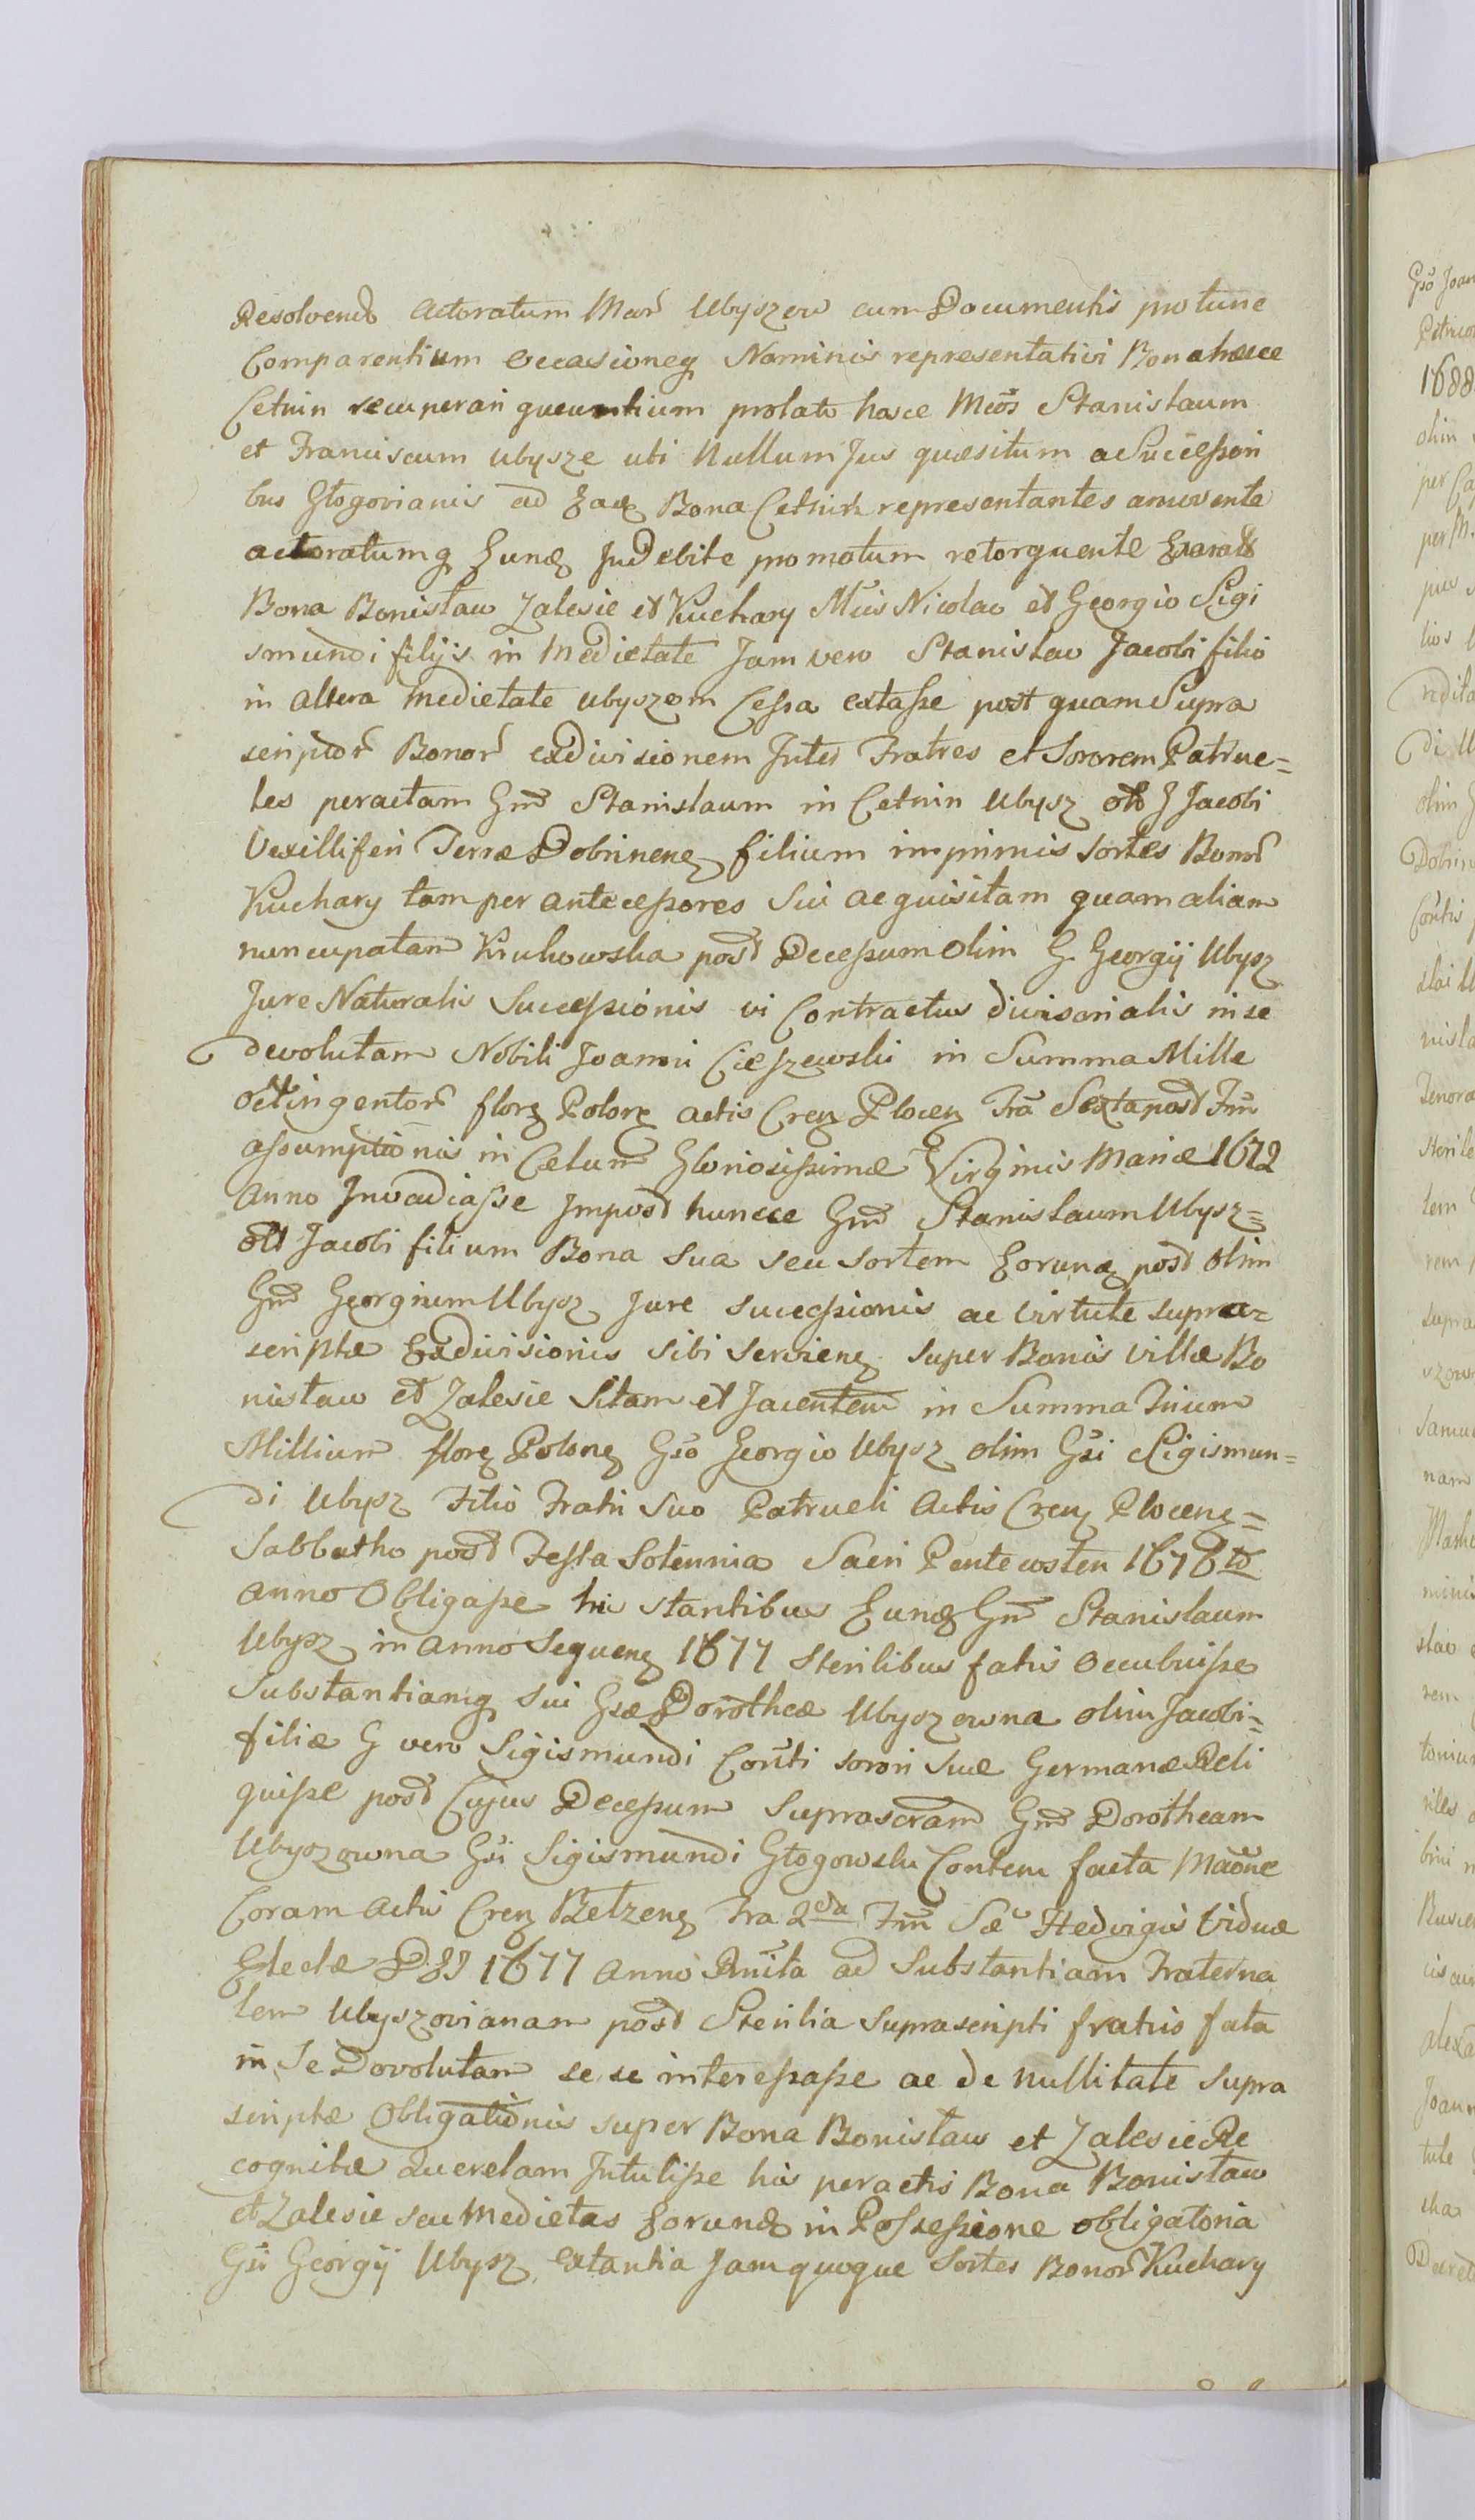 Resolvendo Actoratum Mcor Ubyszew cum Documentis pro tunc
Comparentium Occasioneq Nominis representativi Bona hæcce
Cetnin recuperari queuntium prolato hasce Mcos Stanislaum
et Franciscum Ubysze uti Nullum Jus quæsitum a Successori
bus Głogovianis ad Eadę Bona Cetnin representantes amovente
actoratumq Eundę Indebite promotum retorquente Exarata
Bona Bonisław Zalesie et Kuchary Mcis Nicolao et Georgio Sigi
smundi filijs in Medietate Jam vero Stanislao Jacobi filio
in altera Medietate Ubyszom Cessa extasse post quam Supra
scriptor Bonor exdivisionem Inter Fratres et Sororem Patrue=
les peractam Gnd Stanislaum in Cetnin Ubysz olo G Jacobi
Vexilliferi Terræ Dobrinenę filium imprimis Sortes Bonor
Kuchary tam per antecessores Sui acquisitam quam aliam
nuncupatam Kruhowska post Decessum olim G. Georgij Ubysz
Jure Naturalis Successionis vi Contractus divisorialis in se
devolutam Nobili Joanni Cieszewski in Summa Mille
octingentor florę Polorę actis Crenę Plocenę Fra Sexta post Fm
assumptionis in Cælum Gloriosissimæ Virginis Mariæ 1672
Anno Invadiasse Impost huncce Gnd Stanislaum Ubysz=
olt Jacobi filium Bona sua seu Sortem Eorundę post olim
Gnd Georgium Ubysz Jure successionis ac virtute supra=
scriptæ Exdivisionis sibi servienę super Bonis villæ Bo
nisław et Zalesie Sitam et Jacentem in Summa Trium
Millium florę Polonę Gso Georgio Ubysz olim Gsi Sigismun=
di Ubysz Filio Fratri Suo Patrueli Actis Crenę Plocenę=
Sabbatho post Festa Solennia Sacri Pentecosten 1676to
anno Obligasse his stantibus Eundę Gnd Stanislaum
Ubysz in anno Sequenę 1677 Sterilibus fatis Occubuisse
Substantiamq Sui Gsæ Dorotheæ Ubyszowna olim Jacobi=
filiæ G vero Sigismundi Conti sorori Suæ Germanæ Reli
quisse post Cujus Decessum Suprascram Gnd Dorotheam
Ubyszowna Gsi Sigismundi Głogowski Contem facta Maone
Coram Actis Crenę Betzenę Fra 2da Fm Sæ Hedvigis Viduæ
Electæ 1677 anno ad Substantiam Fraterna
lem Ubyszovianam post Sterilia Suprascripti fratris fata
in Se Dovolutam se se interessasse ac de Nullitate Supra
scriptæ Obligationis super Bona Bonisław et Zalesie Re
cognitæ Querelam Intulisse his peractis Bona Bonisław
et Zalesie seu Medietas Eorundę in Possessione obligatoria
Gsi Georgij Ubysz Extantia Jam quoque Sortes Bonor Kuchary